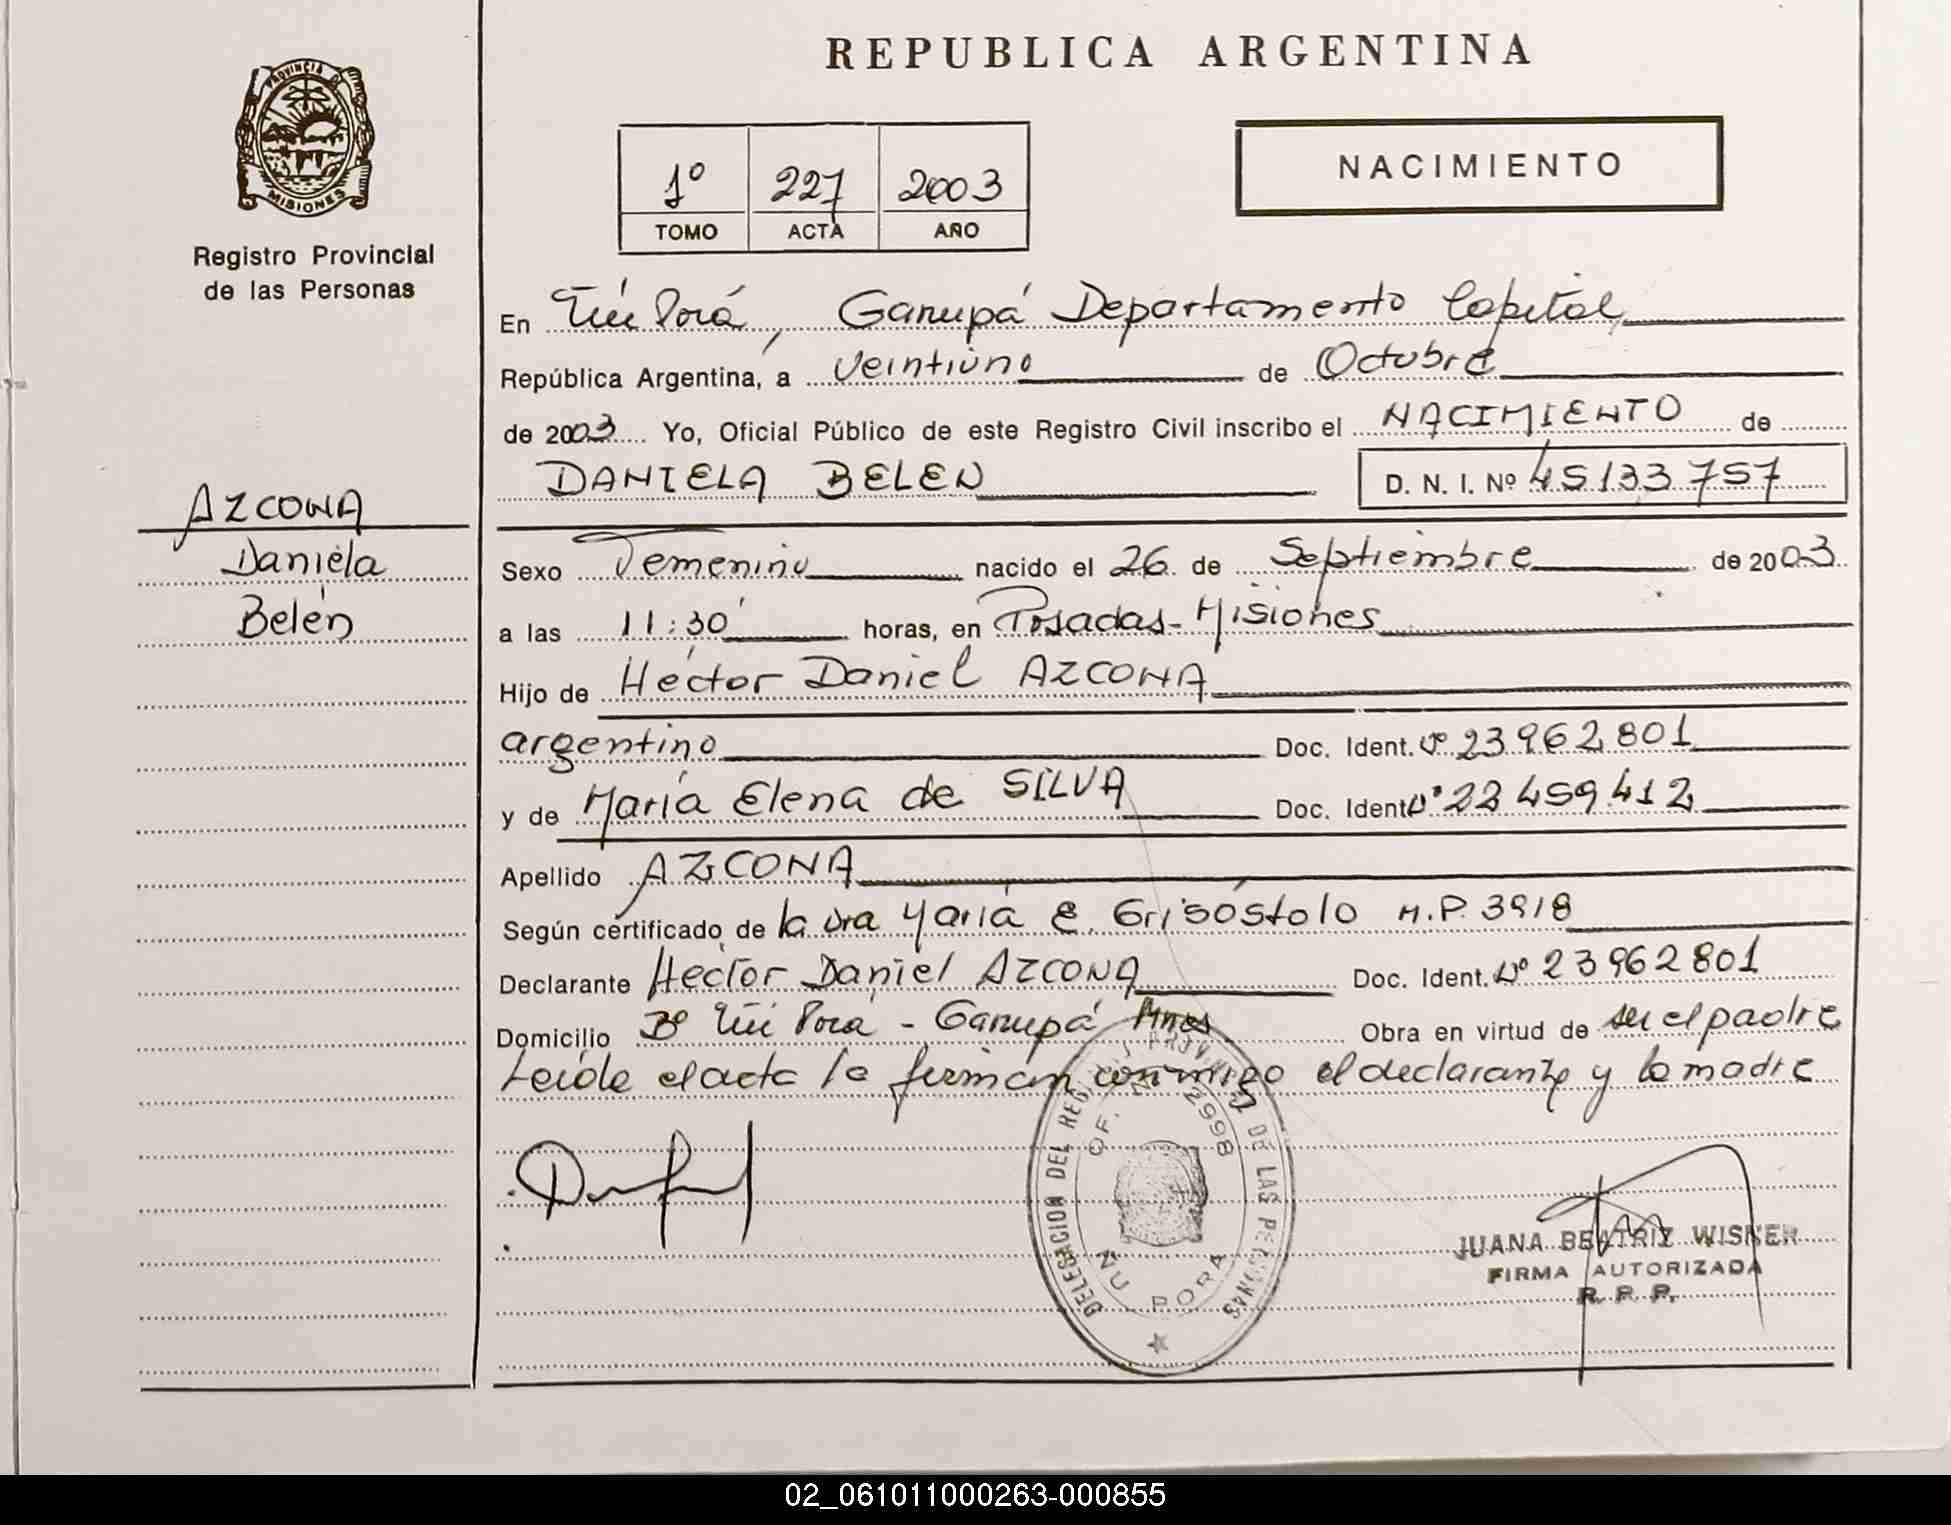 REPUBLICA ARGENTINA
PROVINCIA DE
MISIONES
Registro Provincial
de las Personas
1º 227 2003
TOMO ACTA AÑO
NACIMIENTO
En Ñú Porá, Garupá Departamento Capital,
República Argentina, a Veintiuno de Octubre
de 2003 Yo, Oficial Público de este Registro Civil inscribo el NACIMIENTO de
DANIELA BELEN D. N. I. Nº 45133757
AZCONA
Daniela
Belén
Sexo Femenino nacido el 26 de Septiembre de 2003
a las 11:30 horas, en Posadas-Misiones
Hijo de Héctor Daniel AZCONA
argentino Doc. Ident. Nº 23962801
y de María Elena de SILVA Doc. Ident Nº 22459412
Apellido AZCONA
Según certificado de la Dra María E. Grisóstolo M.P. 3918
Declarante Hector Daniel AZCONA Doc. Ident. Nº 23962801
Domicilio Bº Ñú Porá - Garupá Mnes Obra en virtud de ser el padre
Leída el acta la firman conmigo el declarante y la madre
DELEGACION DEL REGISTRO PROVINCIAL DE LAS PERSONAS
OF. 2998
ÑU PORA
JUANA BEATRIZ WISNER
FIRMA AUTORIZADA
R. P. P.
02_061011000263-000855